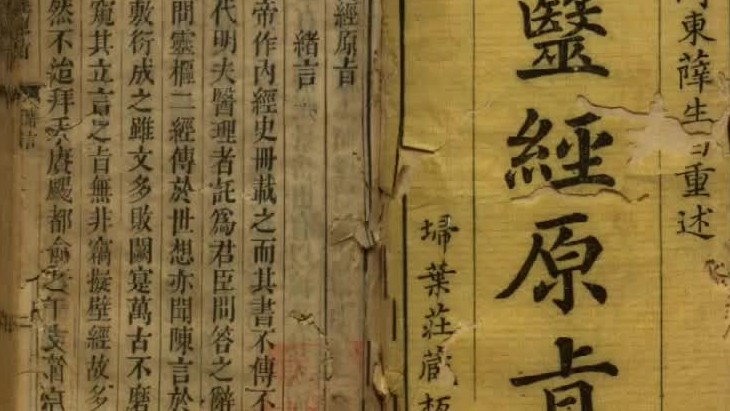 河東薛生白重述
醫經原旨
埽葉莊藏板
經原旨
緒言
帝作內經史冊載之而其書不傳不
代明夫醫理者託爲君臣問答之辭
問靈樞二經傳於世想亦聞陳言於
敷衍成之雖文多敗闕寔萬古不磨
窺其立言之旨無非竊擬壁經故多
然不治拜手賡颺都俞之